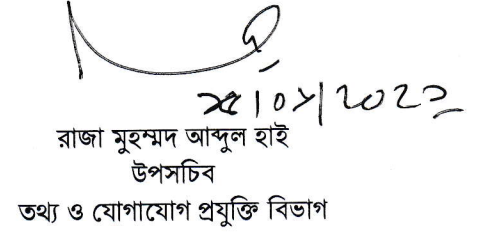 রাজা মুহম্মদ আব্দুল হাই
উপসচিব
তথ্য ও যোগাযোগ প্রযুক্তি বিভাগ